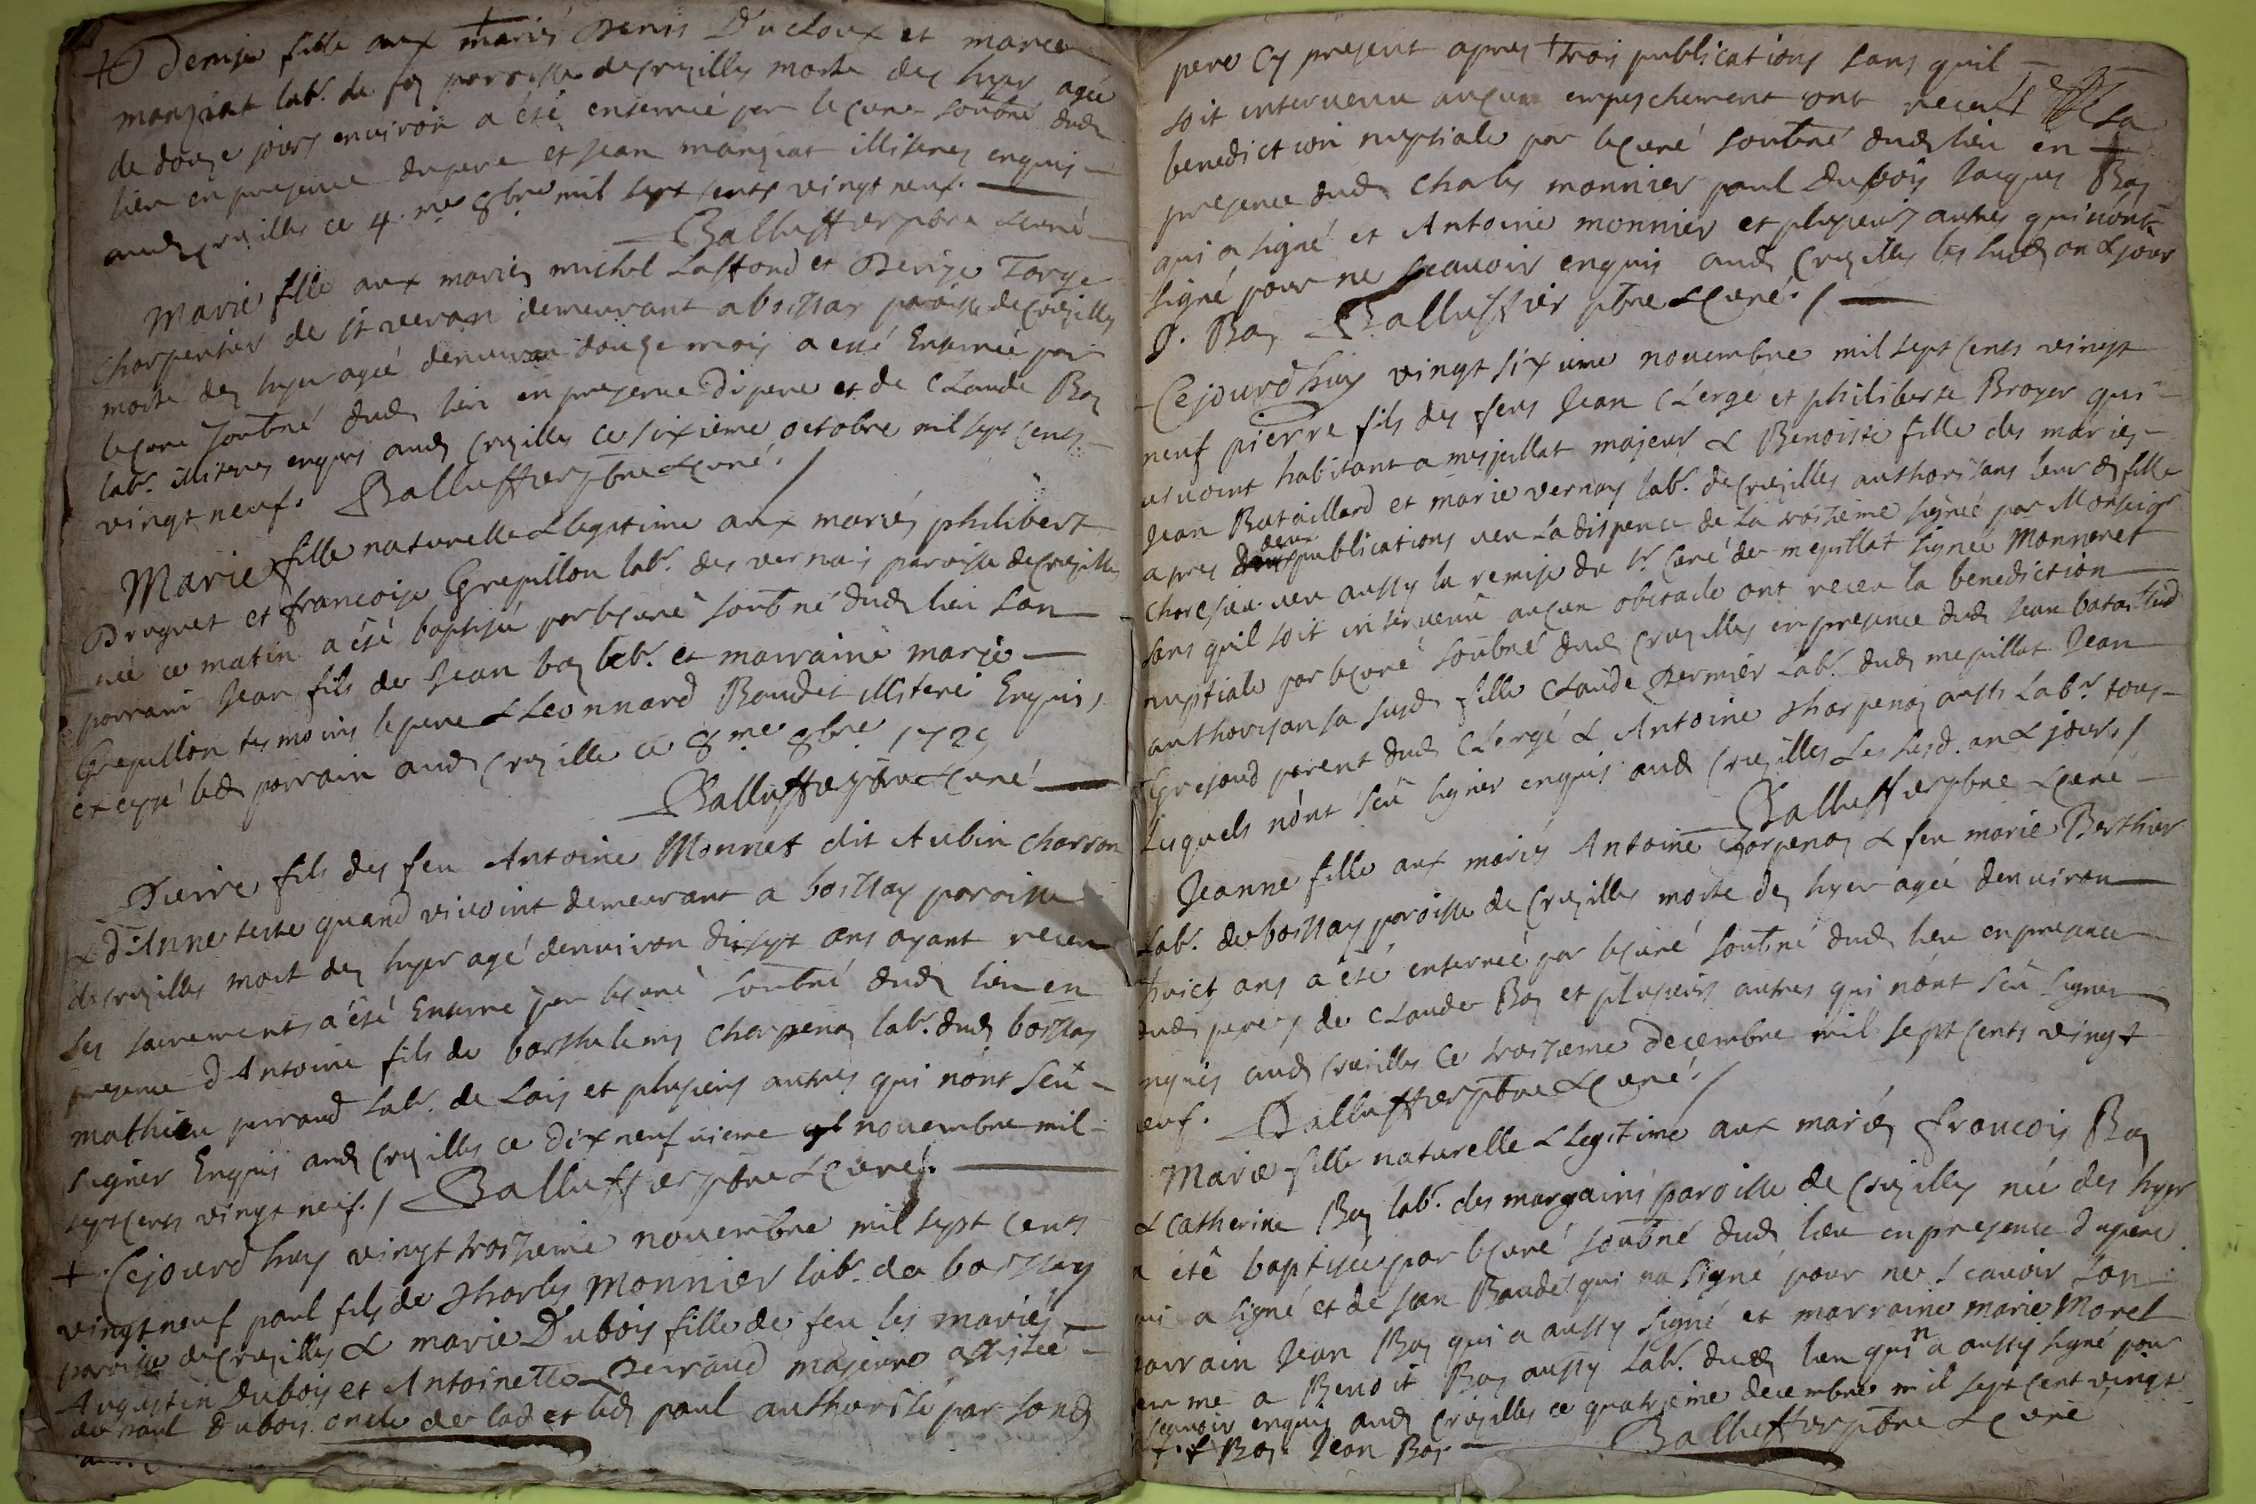 Denise fille aux mariés Denis Ducloux et marie
manziat lab.r de paroisse de Cruzilles morte des hyer agée
de douze jours environ a été enterrée par le curé soubné dud.
lieu en presence du pere et Jean manziat illiterez enquis
aud. Cruzilles ce 4.me 8bre mil sept cents vingt neuf.
Balluffier pbre & curé
Marie fille aux mariés michel Laffond et Denize Torge
charpentier de st veran demeurant a boissay paroisse de Cruzilles
morte des hyer agée denviron douze mois a esté Enterrée par
le curé soubné dud. lieu en presence du pere et de Claude Boy
lab.r illiterez enquis aud. Cruzilles ce sixième octobre mil sept cents
vingt neuf. Balluffier pbre & curé. /
Marie fille naturelle & legitime aux mariés philibert
Druguet et francoise Grepillon lab.r des vernais paroisse de Cruzilles
née ce matin a été baptisée par le curé soubné dud. lieu son
parrain Jean fils de Jean boy lab.r et marraine marie
Grepillon tesmoins le pere & Leonnard Baudet illiterés Enquis,
excepté led. parrain aud. Cruzille ce 8.me 8bre 1729
Balluffier pbre & curé
Pierre fils des feu Antoine Monnet dit Aubin charron
& d'Anne teste quand vivoint demeurant a boissay paroisse
de Cruzilles mort des hyer agé denviron dix sept ans ayant receu
les sacrements a été Enterré par le curé soubné dud. lieu en
presence d'Antoine fils de barthelemy Charpenay lab.r dud. boissay
mathieu perraud lab.r de Lais et plusieurs autres qui nont sçû
signer Enquis aud. Cruzilles ce dix neuf vieme novembre mil
sept cents vingt neuf. / Balluffier pbre & curé.
+ Cejourdhuy vingt troisieme novembre mil sept cents
vingt neuf paul fils de Charles Monnier lab.r de boissay
paroisse de Cruzilles & marie Dubois fille de feu les mariés
Augustin Dubois et Antoinette Perraud majeure assistée
de paul Dubois oncle de lad. et led. paul authorisé par sond.
pere cy present apres trois publications sans quil
soit intervenu aucun empeschement ont receu la
benediction nuptiale par le curé soubné dud. lieu en
presence dud. Charles monnier paul Dubois Jacques Boy
qui a signé et Antoine monnier et plusieurs autres qui nont
signé pour ne scavoir enquis aud. Cruzilles les susd. an & jour
J. Boy Balluffier pbre & curé. /
Cejourdhuy vingt sixieme novembre mil sept cents vingt
neuf pierre fils des feus Jean Clerge et philiberte Broyer qui
vivoint habitant a mespillat majeur & Benoiste fille des mariés
Jean Bataillard et marie vernay lab.r de Cruzilles authorisans leurd. fille
apres deux publications veu La dispence de La troisieme signée par Monseigr
veu aussy la remise du Sr. Curé de mepillat signée Monneret
sans quil soit intervenu aucun obstacle ont receu la benediction
nuptiale par le curé soubné dud. Cruzilles en presence dud. Jean bataillard
authorisan sa susd. fille Claude Permier Lab.r dud. mepillat Jean
Grezaud parent dud. Clergé & Antoine charpenay aussi Lab.r tous
Lesquels nont sçû signer enquis aud. Cruzilles Les susd. an & jour. /
Balluffier pbre & curé
Jeanne fille aux mariés Antoine Charpenay & feu marie Berthier
Lab.r de boissay paroisse de Cruzilles morte des hyer agée denviron
huict ans a été enterrée par le curé soubné dud. lieu en presence
dud. pere, de Claude Boy et plusieurs autres qui nont sçû signer
nquis aud. Cruzilles ce troisieme decembre mil sept cents vingt
euf. Balluffier pbre & curé. /
Marie fille naturelle & legitime aux mariés francois Boy
& catherine Boy lab.r des margains paroisse de Cruzilles née des hyer
a été baptisée par le curé soubné dud. lieu en presence du pere
ui a signé et de Jean Baudet qui na signé pour ne scavoir son
parrain Jean Boy qui a aussy signé et marraine marie Morel
emme a Benoit Boy aussy Lab.r dud. lieu qui n'a aussy signé pour
scavoir enquis aud. Cruzilles ce quatrieme decembre mil sept cent vingt
f. Boy. Jean Boy. Balluffier pbre & curé